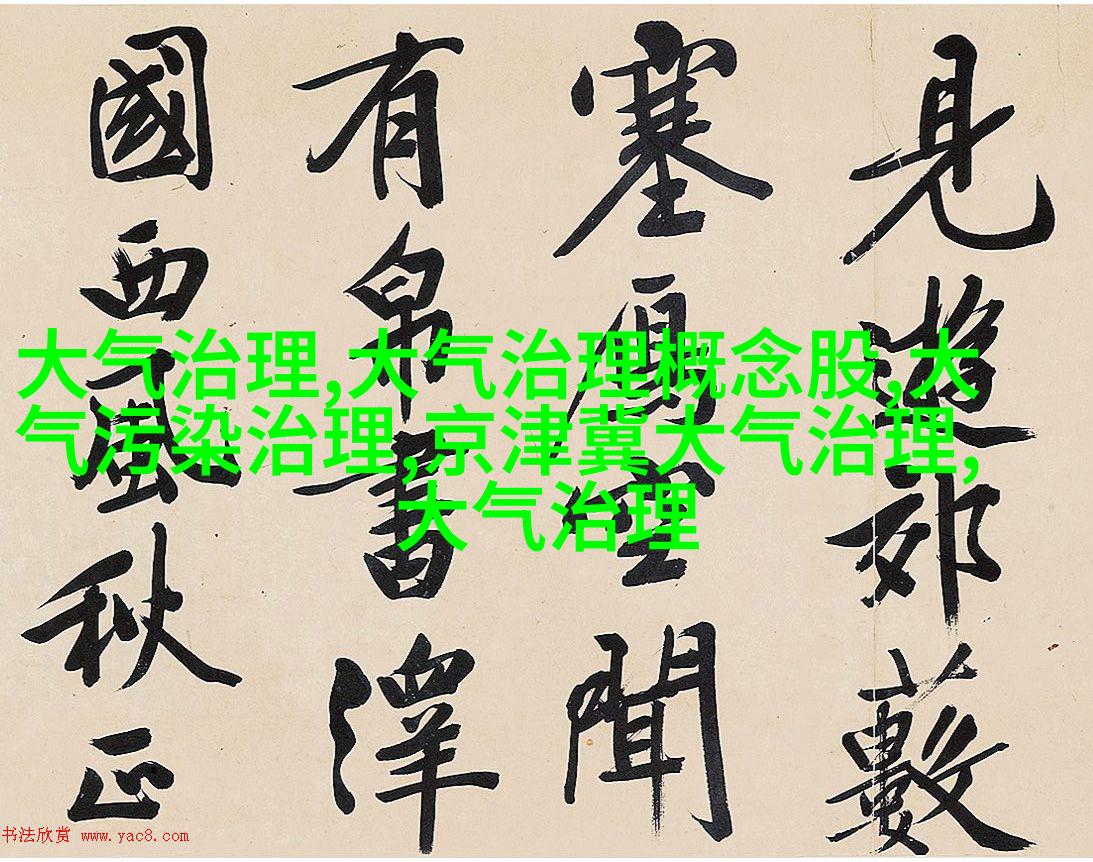 見遊郊藪
塞鴈空聞
有帛書澤
國西風秋正
大气治理,大气治理概念股,大
气污染治理,京津冀大气治理,
大气治理
书法欣赏 www.yac8.com